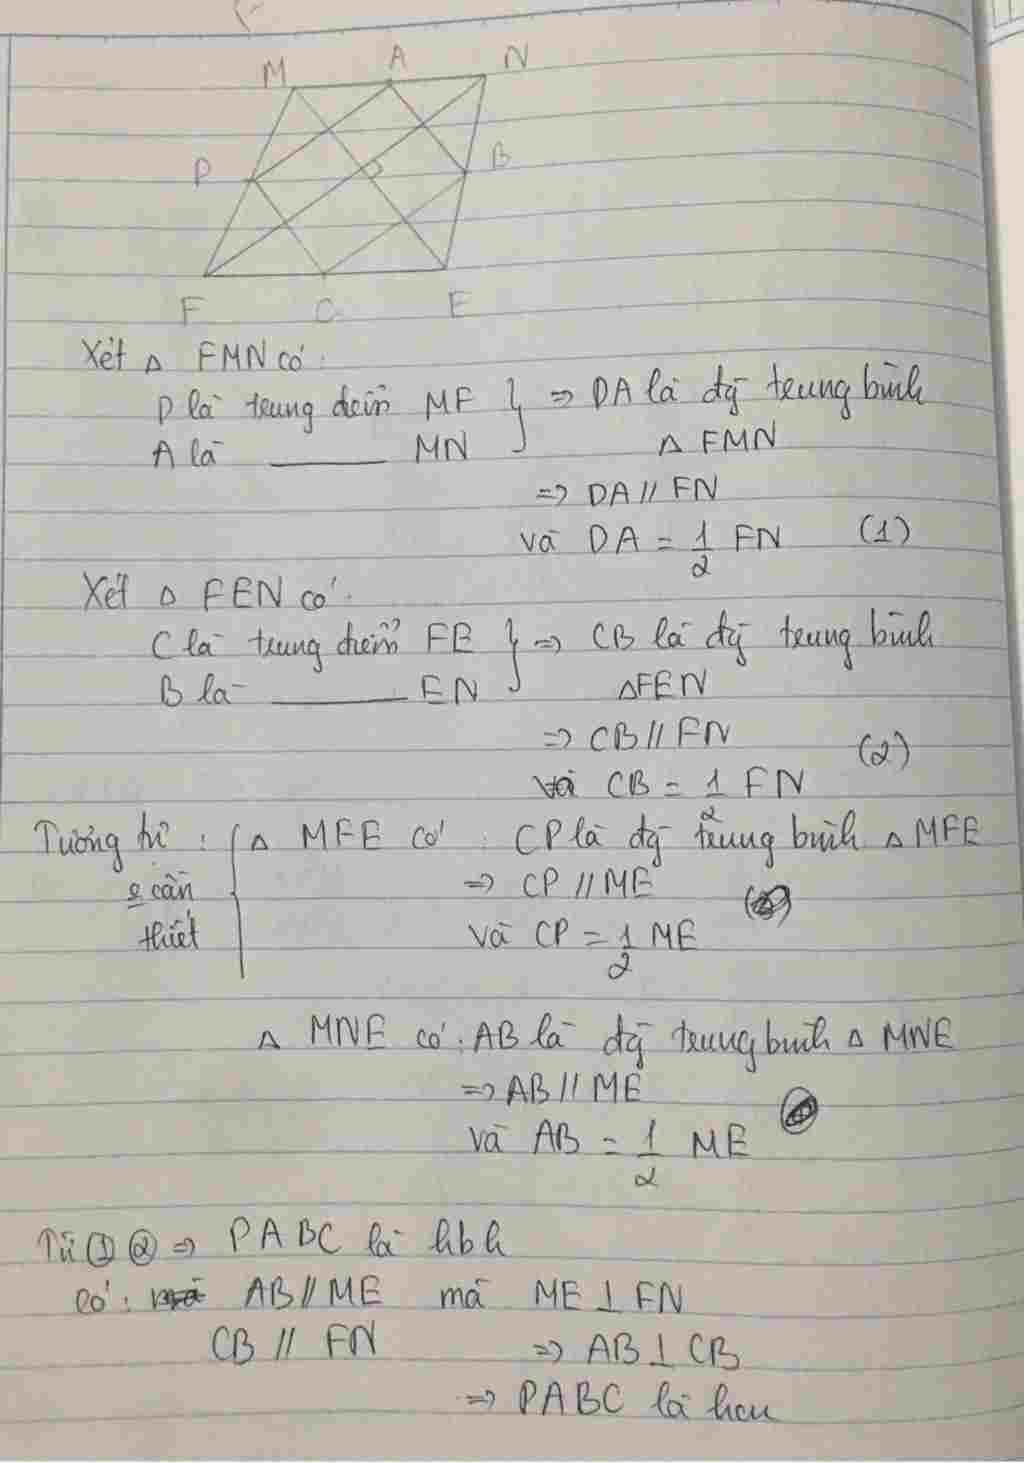 M A N
P B
F C E
Xét Δ FMN có:
P là trung điểm MF } => DA là đg trung bình
A là ____ MN Δ FMN
=> DA // FN
và DA = 1/2 FN (1)
Xét Δ FEN có:
C là trung điểm FE } => CB là đg trung bình
B là ____ EN ΔFEN
=> CB // FN (2)
và CB = 1/2 FN
Tương tự: { Δ MFE có: CP là đg trung bình Δ MFE
cần => CP // ME
thiết và CP = 1/2 ME
Δ MNE có: AB là đg trung bình Δ MNE
=> AB // ME
và AB = 1/2 ME
Từ ① ② => PABC là hbh
có: AB // ME mà ME ⊥ FN
CB // FN => AB ⊥ CB
=> PABC là hcn